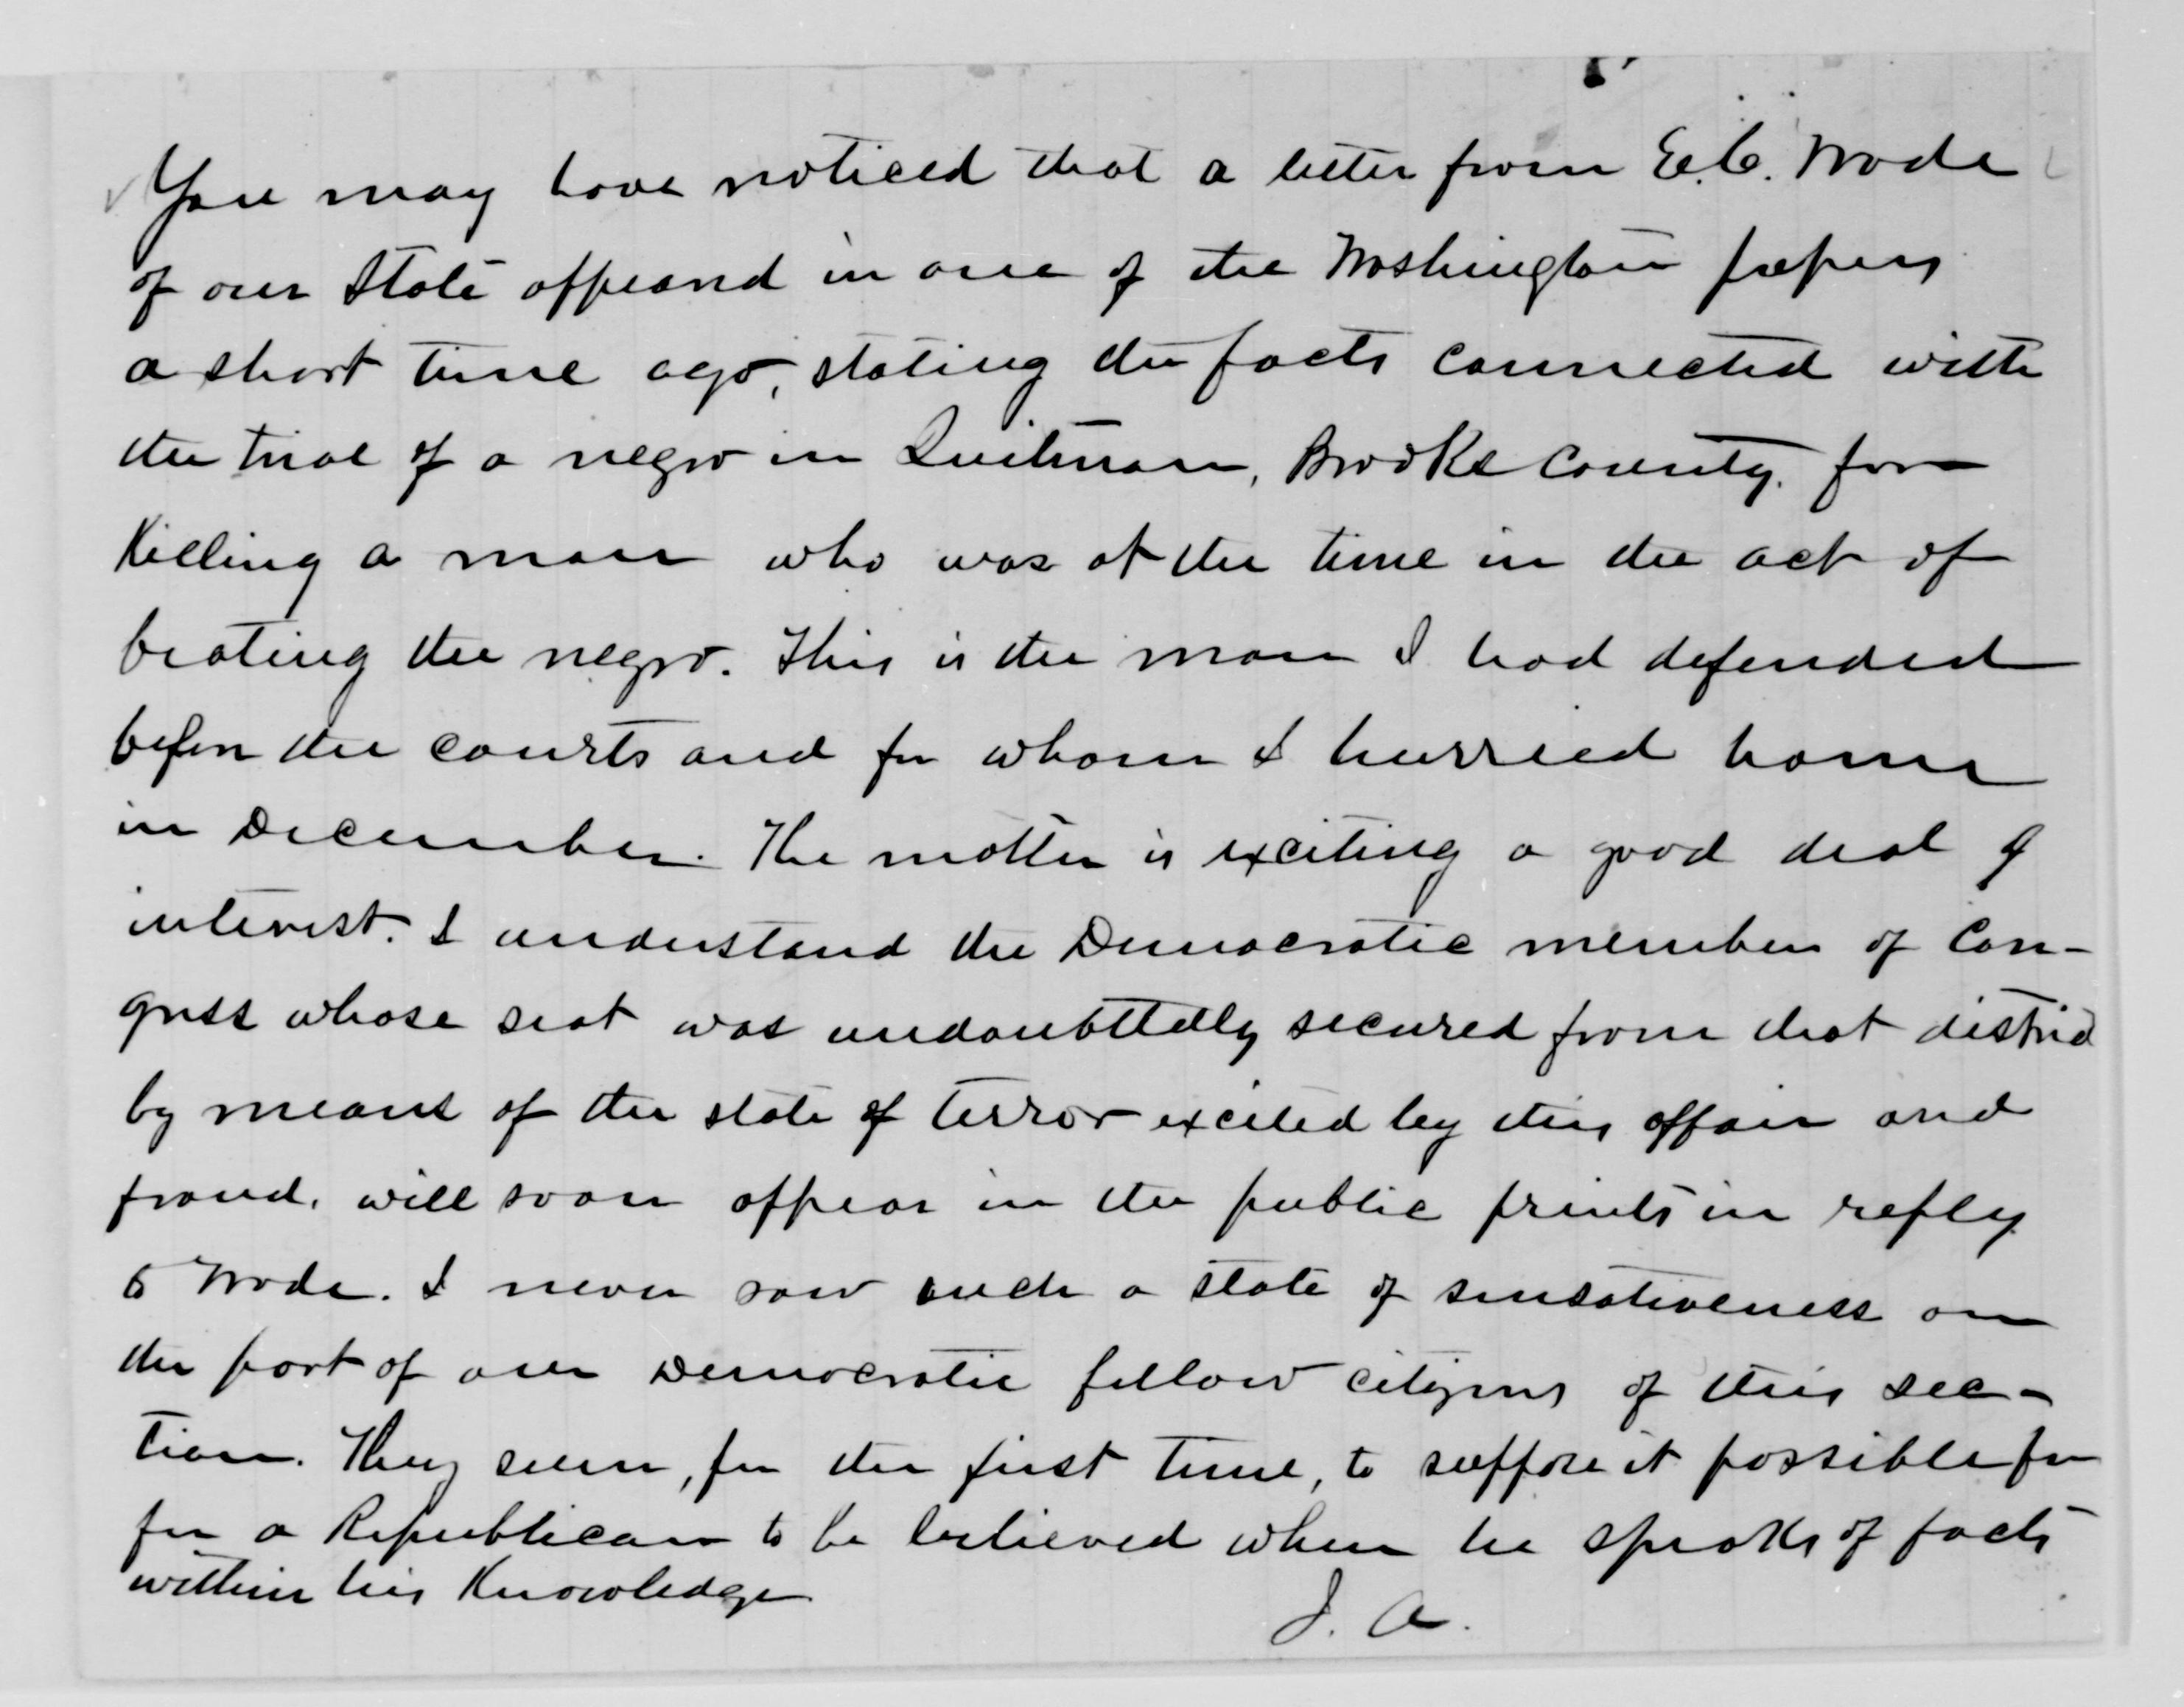 You may have noticed that a letter from E.C. Wade
of our State appeared in one of the Washington papers
a short time ago, stating the facts connected with
the trial of a negro in Quitman, Brooks County. for
Killing a man who was at the time in the act of
beating the negro. This is the man I had defended
before the courts and for whom I hurried home
in December. The matter is exciting a good deal of
interest. I understand the Democratic member of Con-
gress whose seat was undoubttedly secured from that district
by means of the state of terror excited by this affair and
fraud, will soon appear in the public prints in reply
to Wade. I never saw such a state of sensativeness on
the part of our Democratic fellow citizens of this sec-
tion. They seem, for the first time, to suppose it possible for
for a Republican to be believed when he speaks of facts
within his Knowledge
J. A.